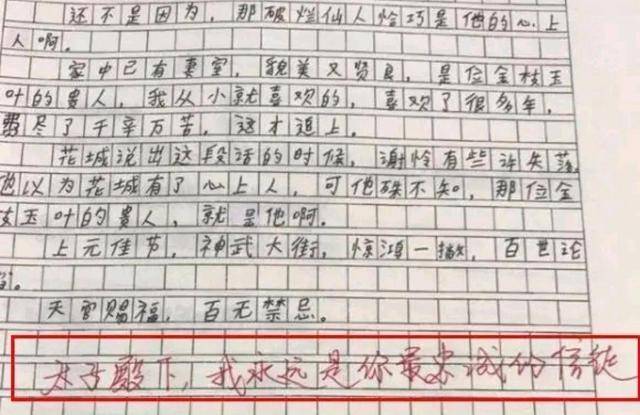 还不是因为,那破烂仙人恰巧是他的心上
人啊。
家中已有妻室,貌美又贤良,是位金枝玉
叶的贵人,我从小就喜欢的,喜欢了很多年,
费尽了千辛万苦,这才追上。
花城说出这段话的时候,谢怜有些许失落,
他以为花城有了心上人,可他殊不知,那位金
枝玉叶的贵人,就是他啊。
上元佳节,神武大街,惊鸿一瞥,百世沦
陷。
天官赐福,百无禁忌。
太子殿下,我永远是你最忠诚的信徒